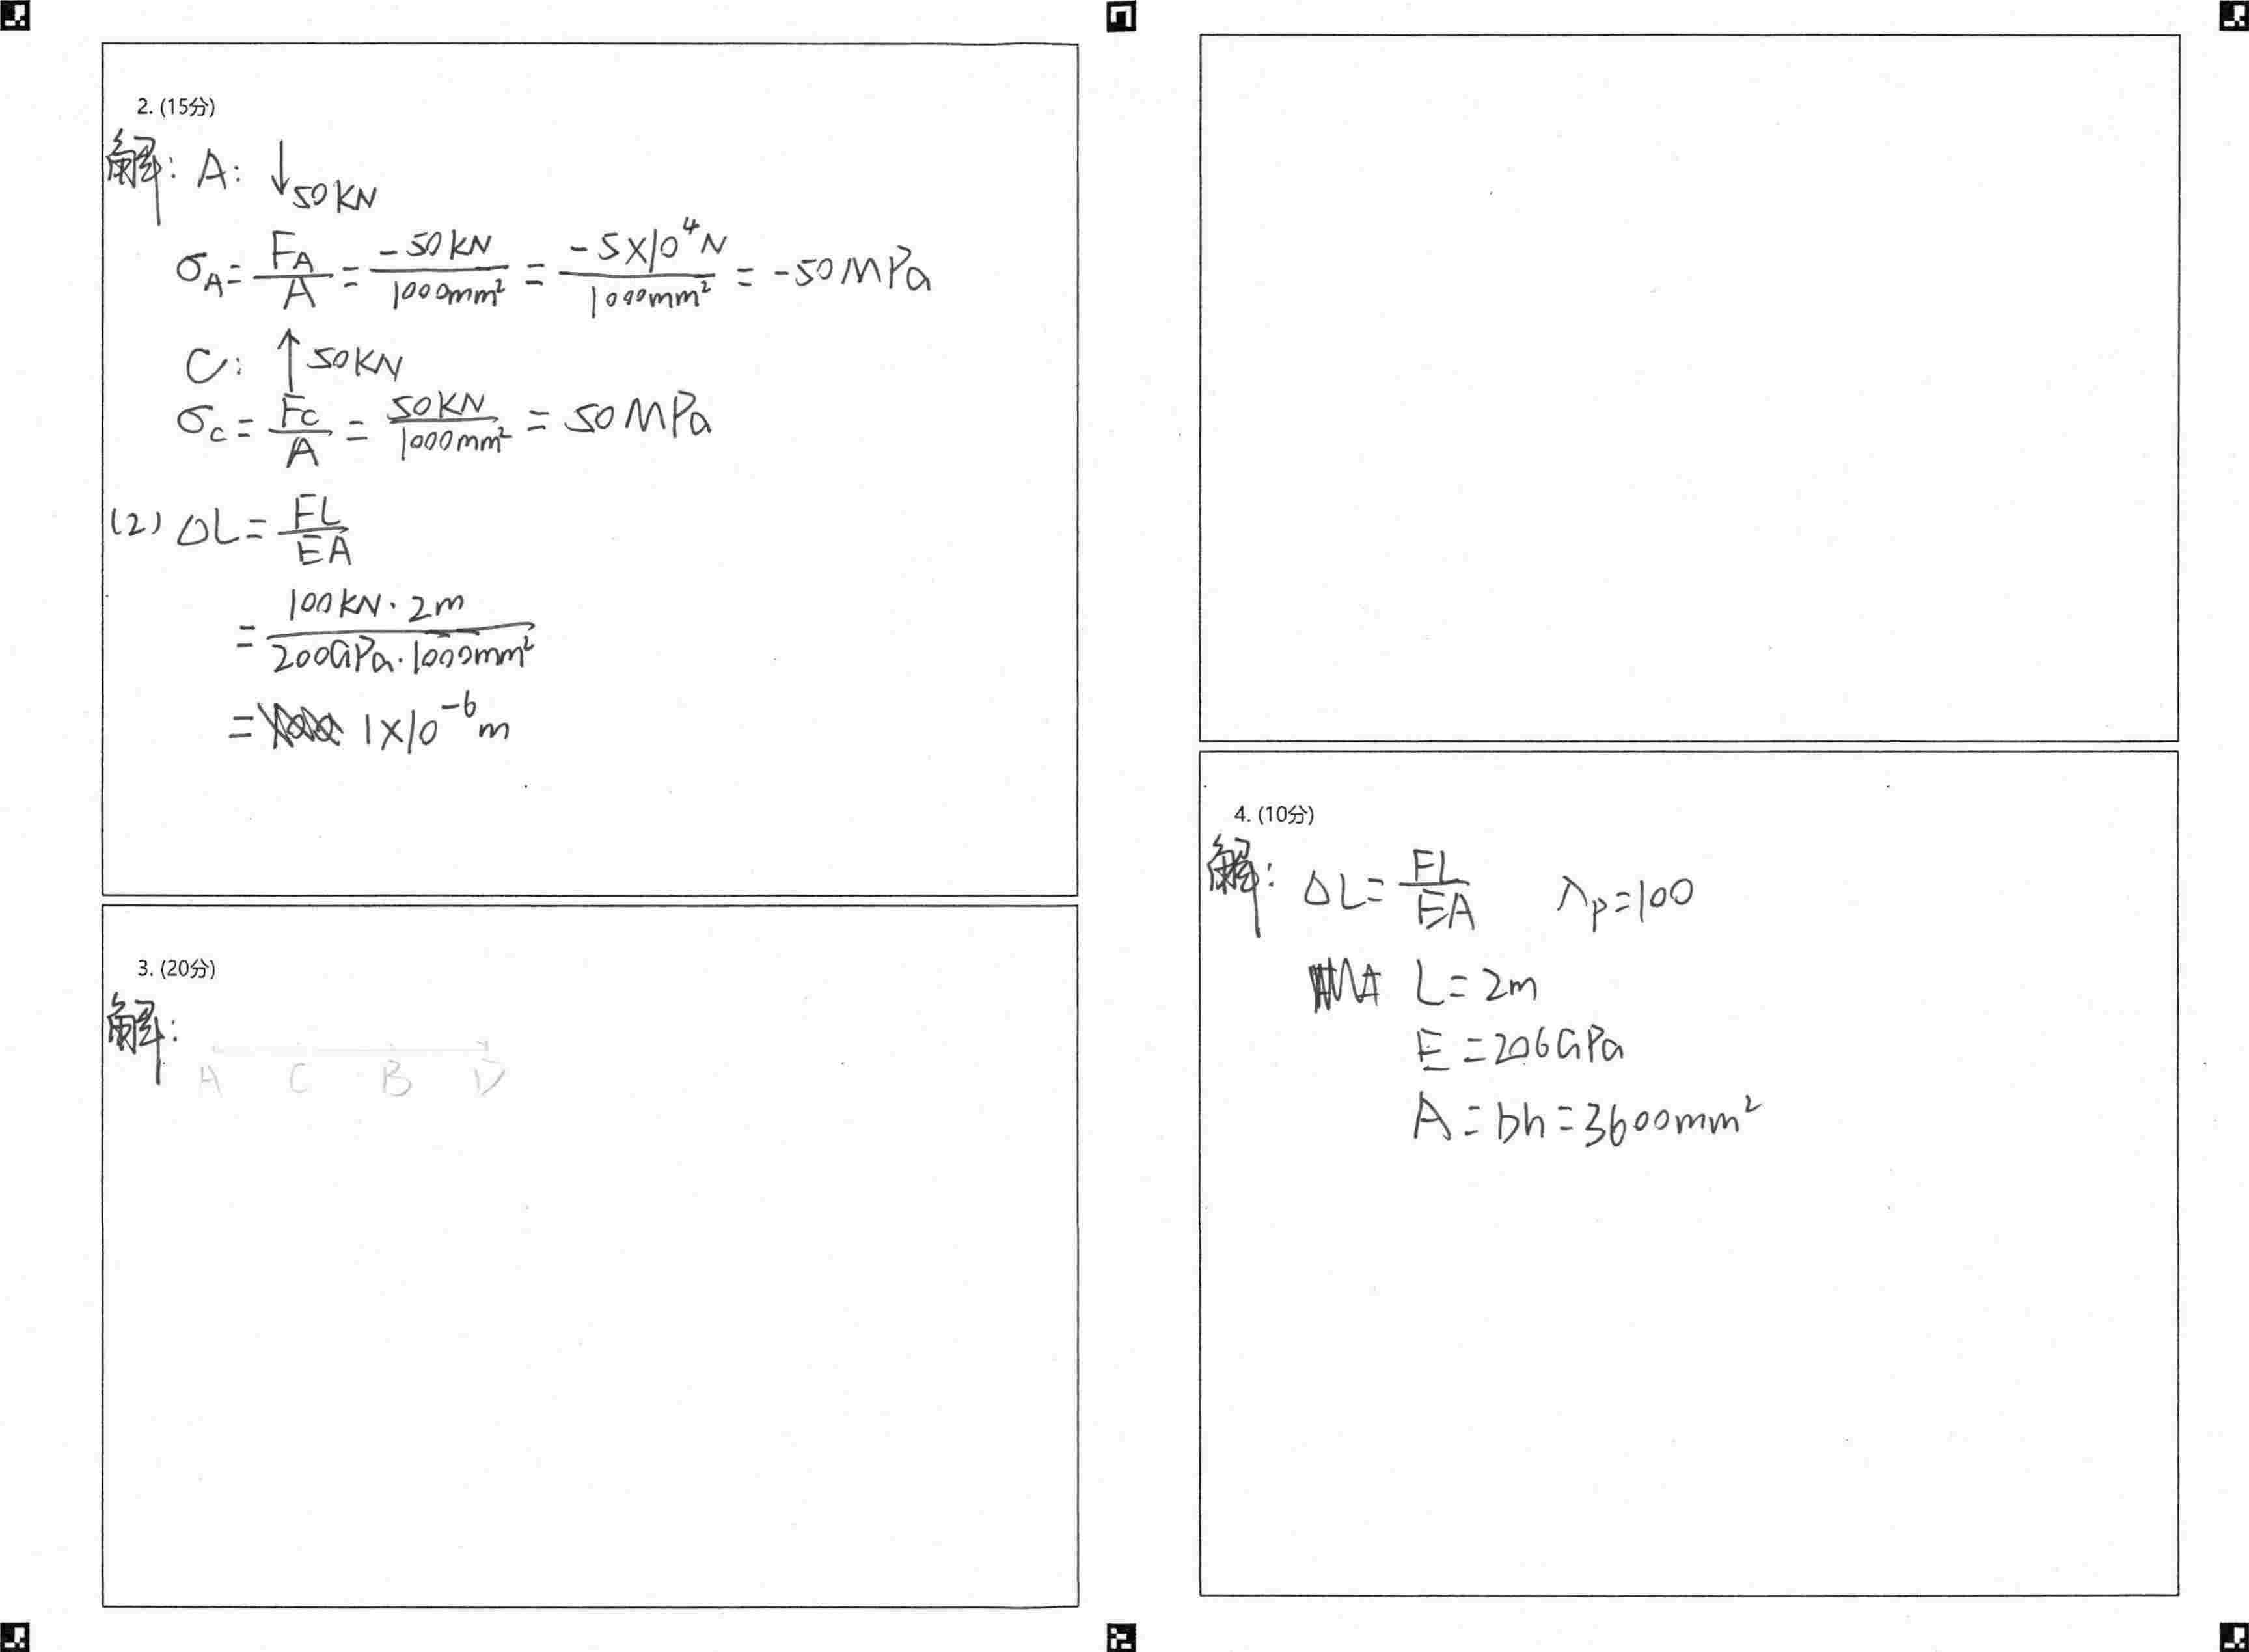 2. (15分)
解: A: ↓50KN
σA = FA/A = -50KN/1000mm² = -5×10⁴N/1000mm² = -50MPa
C: ↑50KN
σc = Fc/A = 50KN/1000mm² = 50MPa
(2) ΔL = FL/EA
= 100KN·2m/200GPa·1000mm²
= 1×10⁻⁶m
3. (20分)
解:
A C B D
4. (10分)
解: ΔL = FL/EA λp=100
L = 2m
E = 206GPa
A = bh = 3600mm²